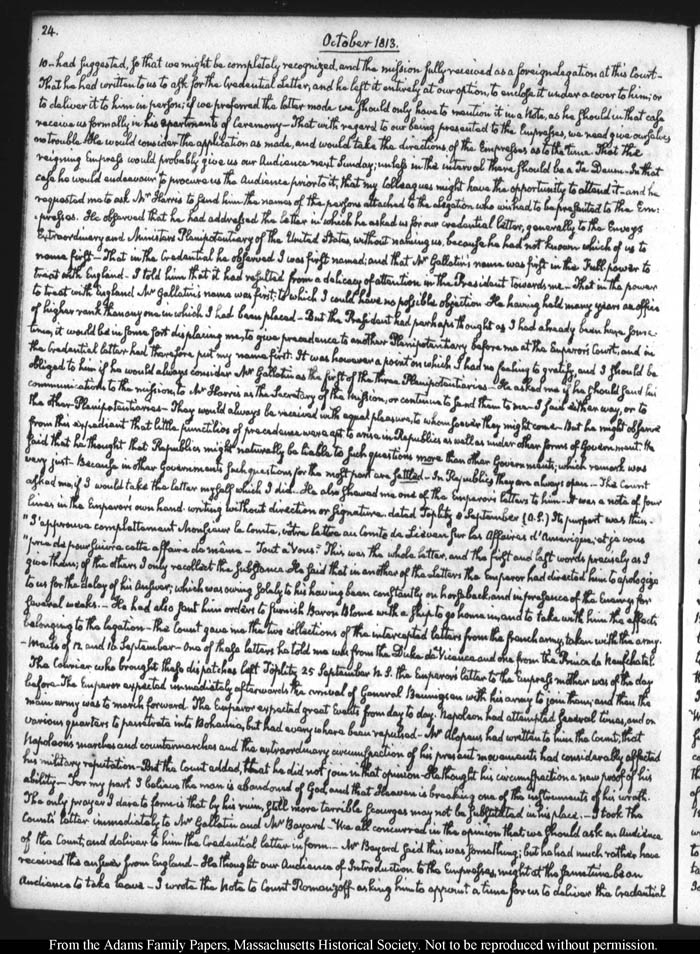 24.
October 1813.
10 - had suggested, so that we might be completely recognized, and the mission fully received as a foreign legation at this Court -
That he had written to us to ask for the Credential Letter, and he left it entirely at our option, to enclose it under a cover to him; or
to deliver it to him in person; if we preferred the latter mode we should only have to mention it in a Note, as he should in that case
receive us formally in his apartments of Ceremony - That with regard to our being presented to the Empresses, we need give ourselves
no trouble. He would consider the application as made, and would take the directions of the Empresses as to the time. That the
reigning Empress would probably give us our Audience next Sunday; unless in the interval there should be a Te Deum - In that
case he would endeavour to procure us the Audience prior to it, that my Colleagues might have the opportunity to attend it - and he
requested me to ask Mr Harris to send him the names of the persons attached to the legation who wished to be presented to the Em:
:presses. He observed that he had addressed the letter in which he asked us for our credential letter, generally to the Envoys
Extraordinary and Ministers Plenipotentiary of the United States, without naming us, because he had not known which of us to
name first - That in the Credential he observed I was first named; and that Mr Gallatin's name was first in the Full power to
treat with England. I told him that it had resulted from a delicacy of attention in the President towards me - That in the power
to treat with England Mr Gallatin's name was first; to which I could have no possible objection. He having held many years an office
of higher rank than any one in which I had been placed - But the President had perhaps thought as I had already been here some
time, it would be in some sort displacing me, to give precedence to another Plenipotentiary before me at the Emperor's Court; and in
the Credential letter had therefore put my name first. It was however a point on which I had no feeling to gratify, and I should be
obliged to him if he would always consider Mr Gallatin as the first of the three Plenipotentiaries - He asked me if he should send his
communications to the mission, to Mr Harris as the Secretary of the Mission, or continue to send them to me - I said either way, or to
the other Plenipotentiaries - They would always be received with equal pleasure, to whomsoever they might come - But he might observe
from this expedient that little punctilios of precedence were apt to arise in Republics as well as under other forms of Government. He
said that he thought that Republics might naturally be liable to such questions more than other Governments; which remark was
very just - Because in other Governments such questions for the most part are settled - In Republics they are always open - The Count
asked me, if I would take the letter myself which I did. He also shewed me one of the Emperor's letters to him - It was a note of four
lines in the Emperor's own hand-writing without direction or signature. dated Toplitz September (O.S.) Its purport was this -
"J'approuve complettement Monsieur le Comte, vôtre lettre au Comte de Lieven sur les Affaires d'Amerique, et je vous
"prie de poursuivre cette affaire de meme - Tout a Vous." This was the whole letter, and the first and last words precisely as I
give them; of the others I only recollect the substance. He said that in another of the letters the Emperor had directed him to apologize
to us for the delay of his Answer; which was owing solely to his having been constantly on horseback, and in presence of the Enemy for
several weeks. - He had also sent him orders to furnish Baron Blome with a ship to go home in, and to take with him the effects
belonging to the legation - The Count gave me the two collections of the intercepted letters from the french army, taken with the army
- Mails of 12 and 16 September - One of these letters he told me was from the Duke de Vicenza and one from the Prince de Neufchatel
The Courier who brought these dispatches left Toplitz 25 September N.S. the Emperor's letter to the Empress mother was of the day
before. The Emperor expected immediately afterwards the arrival of General Bennigsen with his army to join them; and then the
main army was to march forward. The Emperor expected great Events from day to day. Napoleon had attempted several times, and on
various quarters to penetrate into Bohemia, but had every where been repulsed - Mr Alopeus had written to him the Count, that
Napoleon's marches and countermarches and the extraordinary circumspection of his present movements had considerably affected
his military reputation - But the Count added, that he did not join in that opinion. He thought his circumspection a new proof of his
ability. - For my part I believe the man is abandoned of God, and that Heaven is breaking one of the instruments of his wrath.
The only prayer I dare to form is that by his ruin, still more terrible scourges may not be substituted in his place. - I took the
Counts' letter immediately to Mr Gallatin and Mr Bayard - We all concurred in the opinion that we should ask an Audience
of the Count, and deliver to him the Credential letter in form. - Mr Bayard said this was something; but he had much rather have
received the answer from England - He thought our Audience of Introduction to the Empresses, might at the same time be an
Audience to take leave - I wrote the Note to Count Romanzoff asking him to appoint a time for us to deliver the Credential
From the Adams Family Papers, Massachusetts Historical Society. Not to be reproduced without permission.